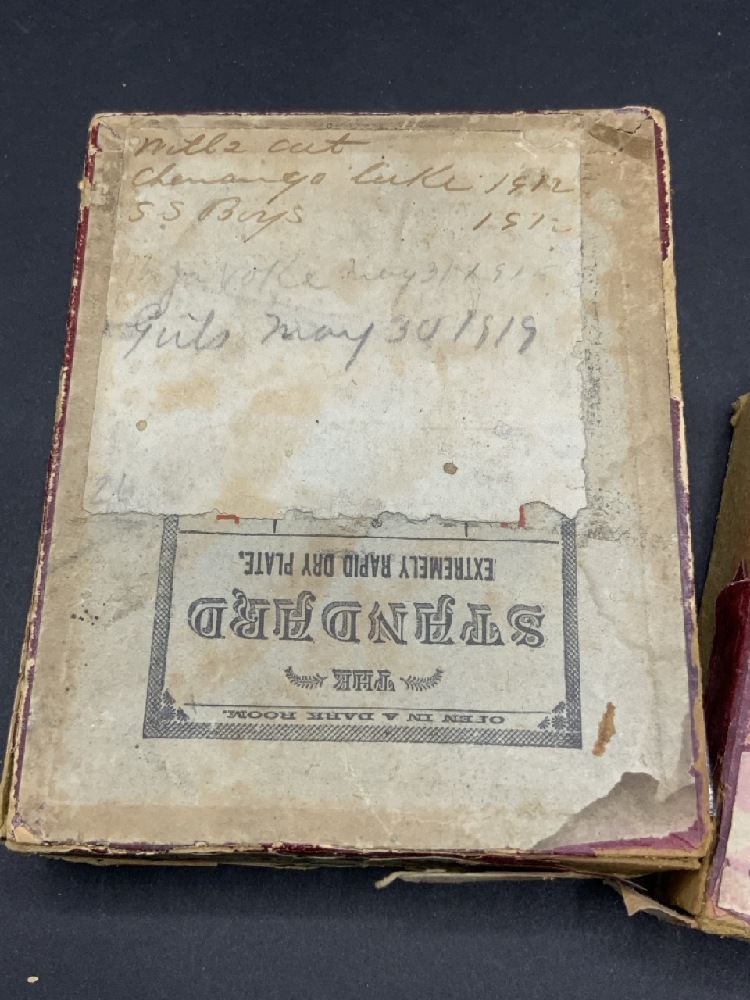 cut
Chenango Lake 1912
S S Boys 1912
May 31 191
Girls May 30 1919
26
OPEN IN A DARK ROOM.
THE
STANDARD
EXTREMELY RAPID DRY PLATE,